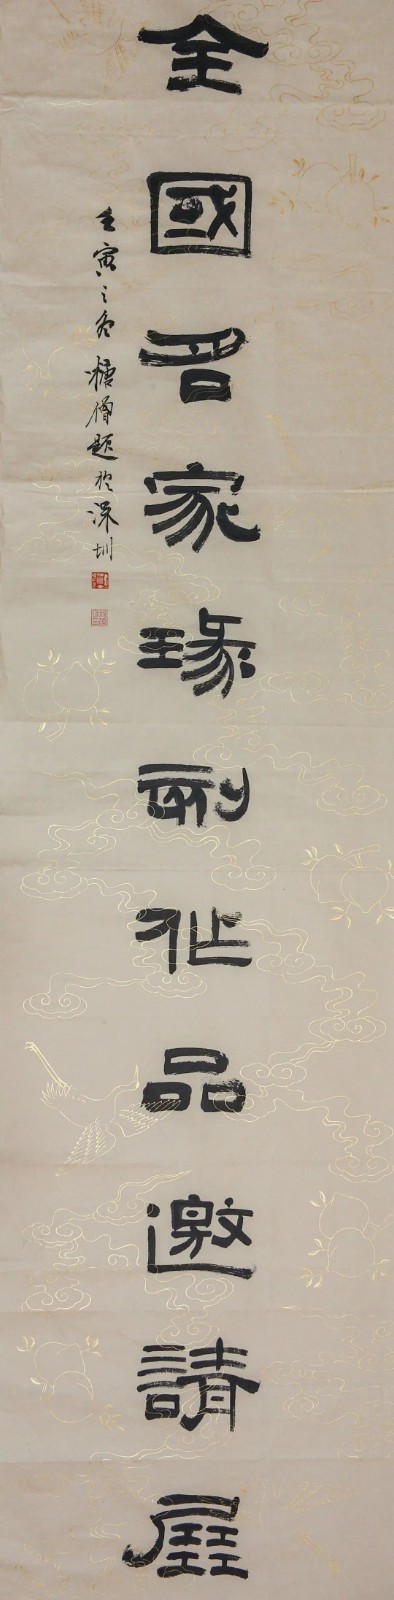 全國名家瑑刻作品邀請展
壬寅之冬 僧題於深圳